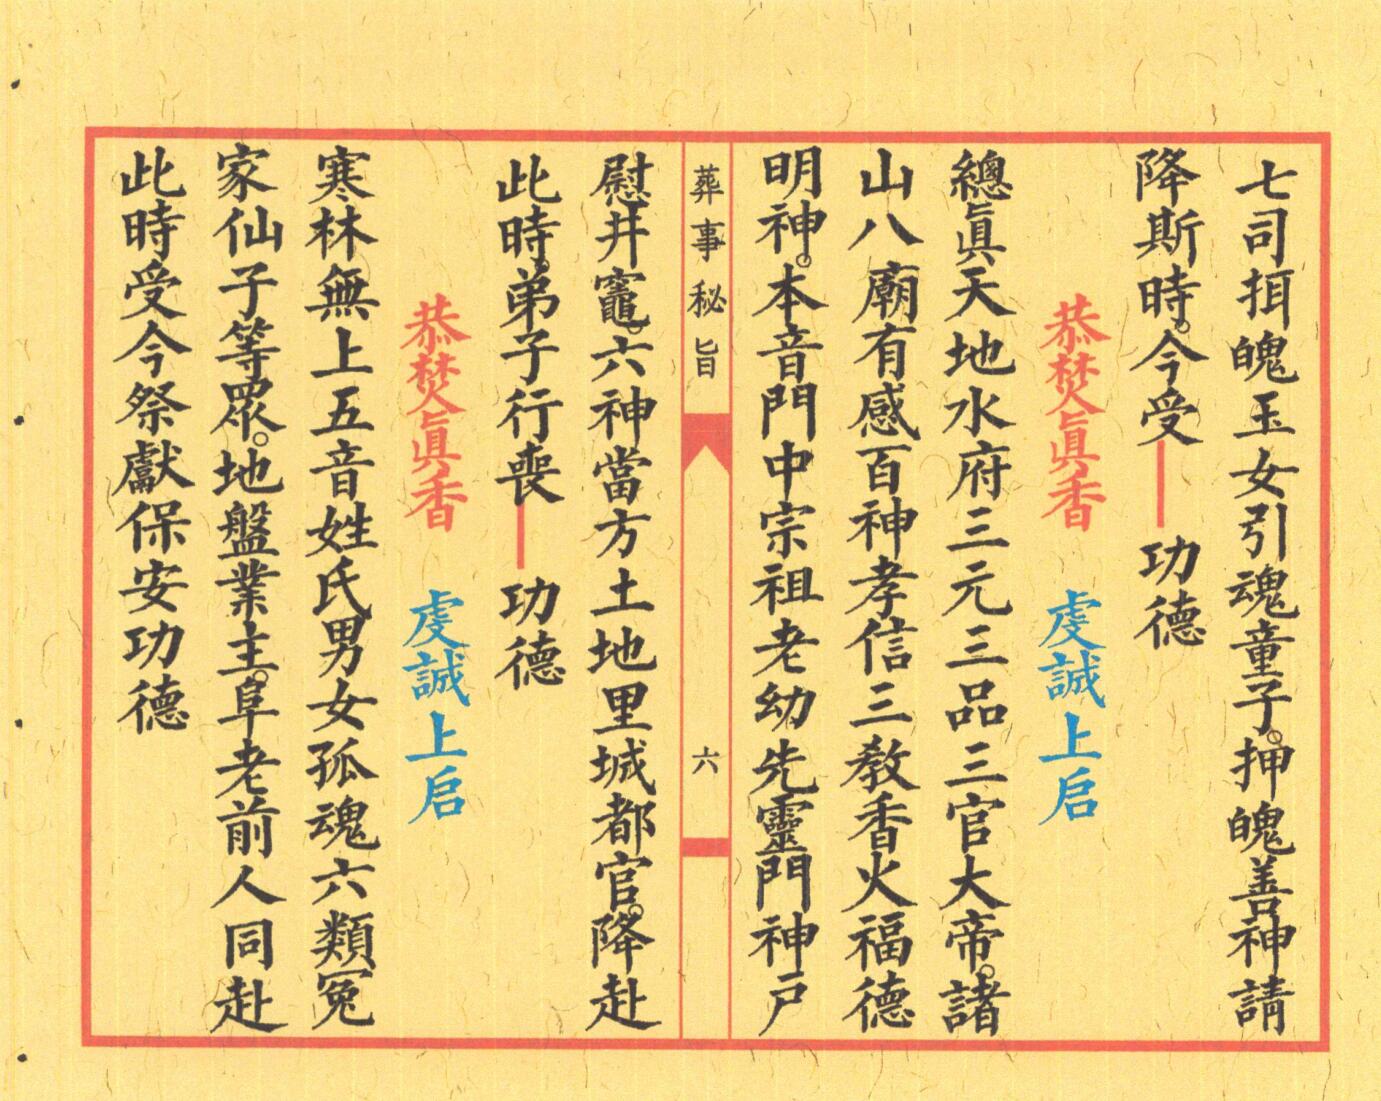 七司抇魄玉女引魂童子。押魄善神請
降斯時。今受——功德
恭焚眞香　虔誠上启
總眞天地水府三元三品三官大帝。諸
山八廟有感百神孝信三教香火福德
明神。本音門中宗祖老幼先靈門神戶
葬事秘旨　六
慰井竈。六神當方土地里城都官。降赴
此時。弟子行喪——功德
恭焚眞香　虔誠上启
寒林無上五音姓氏男女孤魂六類冤
家仙子等眾。地盤業主。阜老前人同赴
此時受今祭獻保安功德